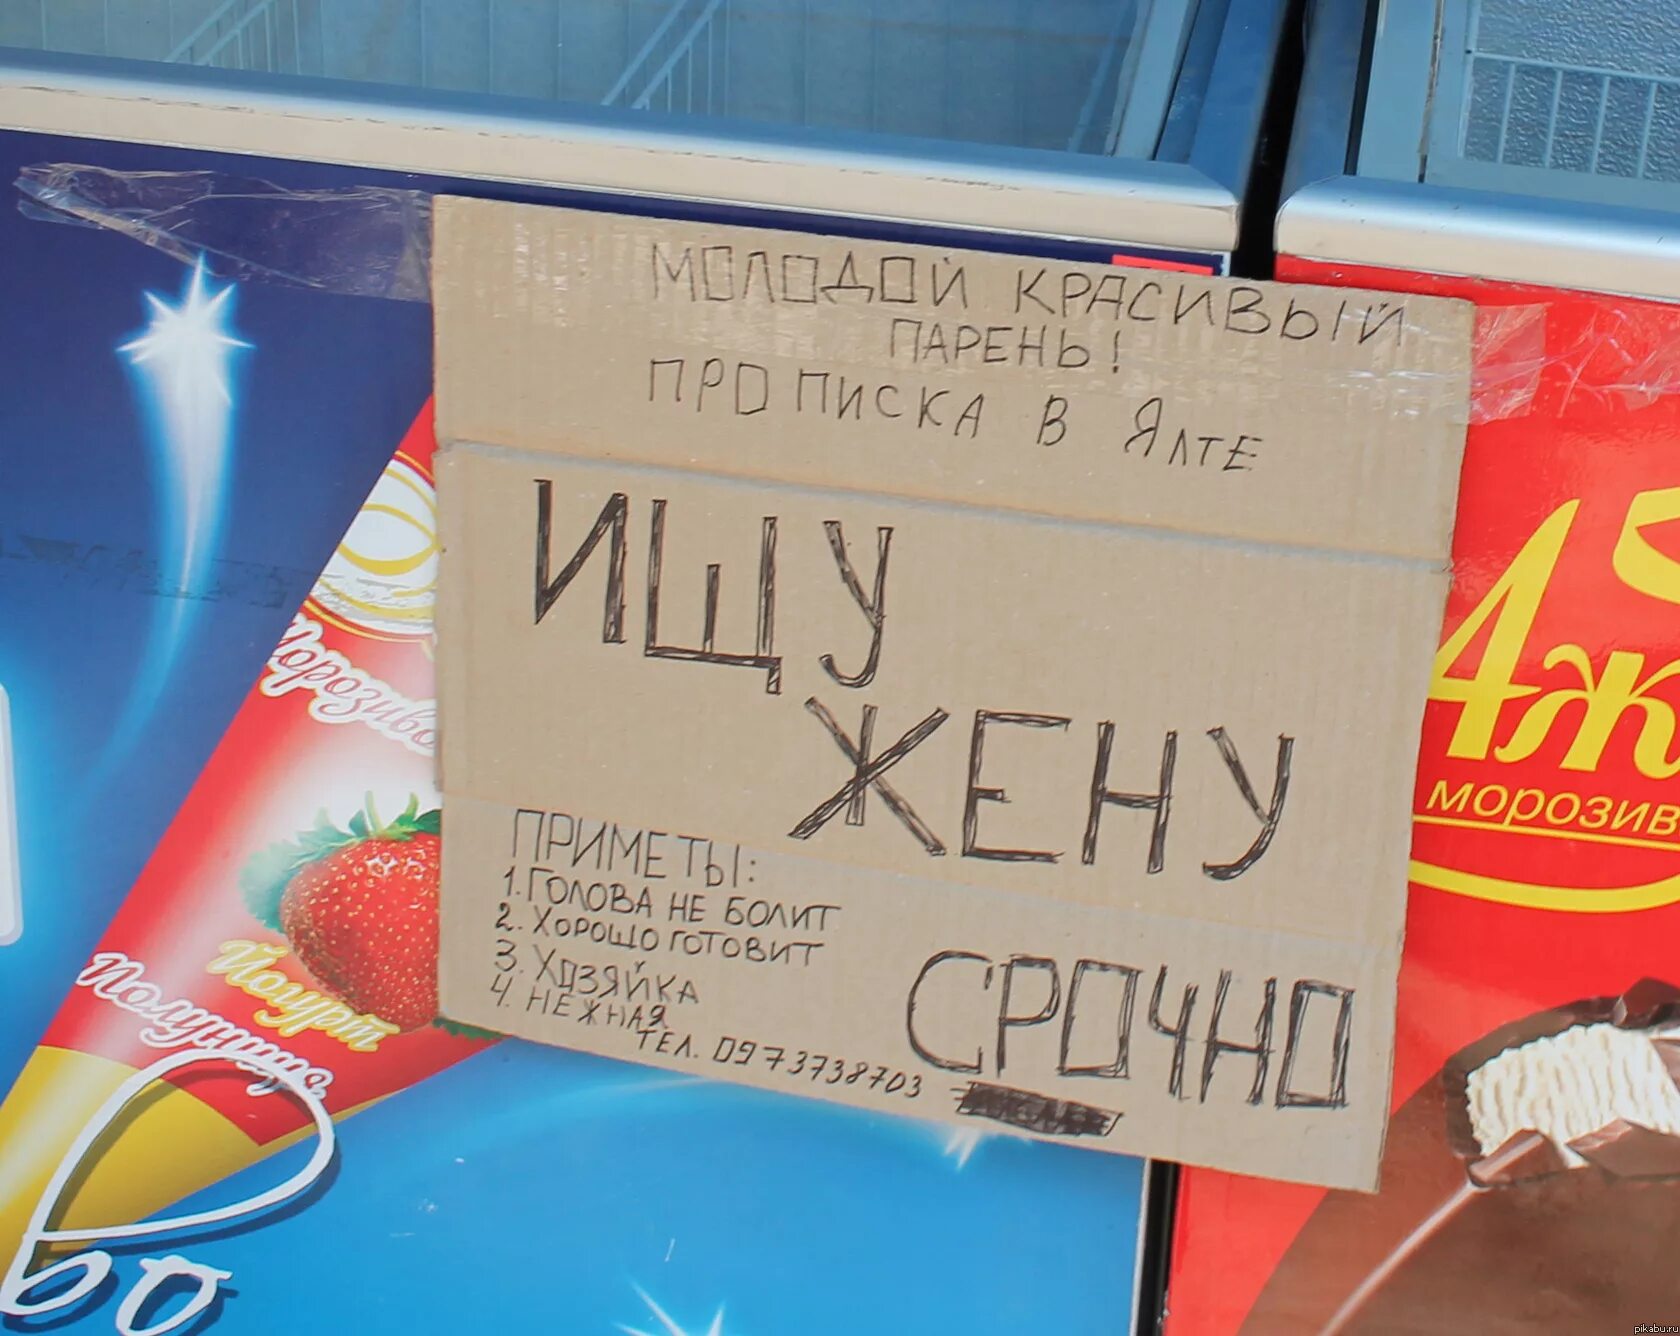 МОЛОДОЙ КРАСИВЫЙ
ПАРЕНЬ!
ПРОПИСКА В ЯЛТЕ
ИЩУ
ЖЕНУ
ПРИМЕТЫ:
1. ГОЛОВА НЕ БОЛИТ
2. ХОРОШО ГОТОВИТ
3. ХОЗЯЙКА
4. НЕЖНАЯ
ТЕЛ. 0973738703
СРОЧНО
Морозиво
Йогурт
Полуниця
во
Аж
МОРОЗИВ
pikabu.ru